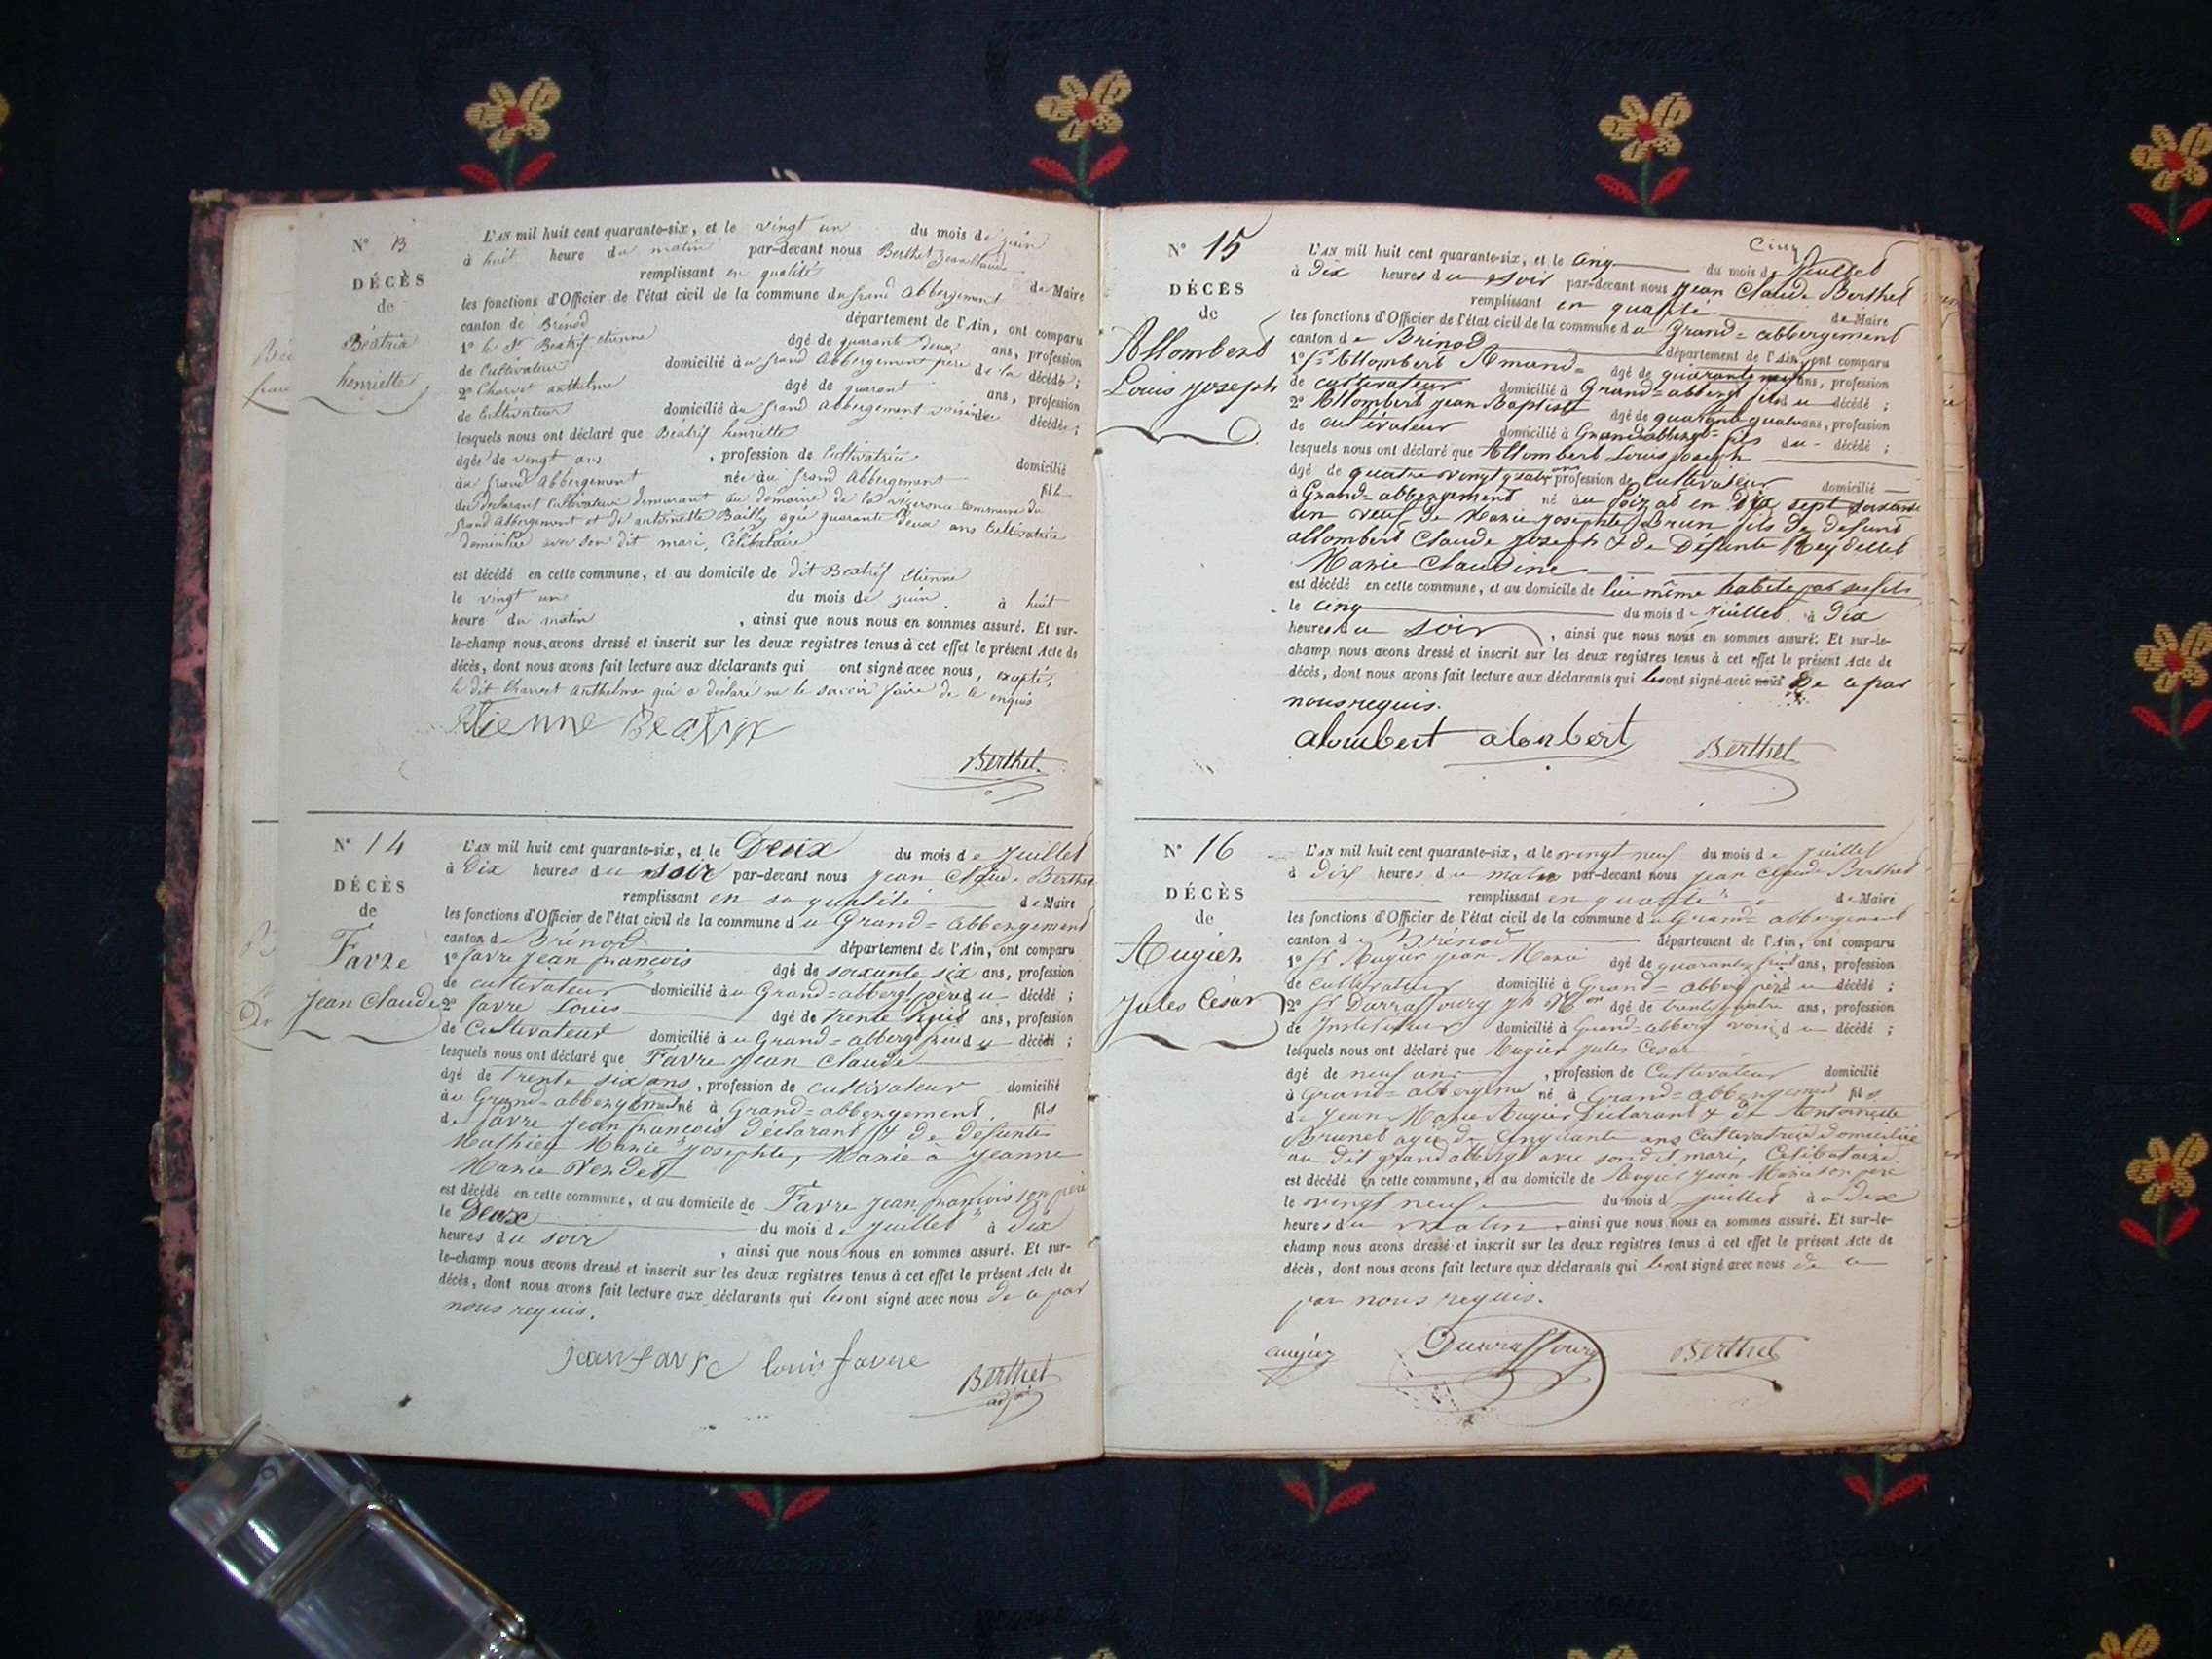 N° 13
DÉCÈS
de
Béatrix
henriette
L'AN mil huit cent quarante-six, et le vingt un du mois de juin
à huit heure du matin par-devant nous Berthet Jean Claude
remplissant en qualité de Maire
les fonctions d'Officier de l'état civil de la commune du grand Abbergement
canton de Brénod département de l'Ain, ont comparu
1° le Sr Beatrif etienne âgé de quarante deux ans, profession
de Cultivateur domicilié au grand Abbergement père de la décédé ;
2° Charvet anthelme âgé de quarant ans, profession
de Cultivateur domicilié au grand Abbergement voisin de décédée ;
lesquels nous ont déclaré que Béatrif henriette
âgée de vingt ans , profession de Cultivatrice domicilié
au grand Abbergement née au grand Abbergement fille
du déclarant Cultivateur demeurant au domaine de la commune du
grand Abbergement et de antoinette Bailly agée quarante deux ans Cultivatrice
domiciliée avec son dit mari, Célibataire
est décédé en cette commune, et au domicile de dit Beatrif etienne
le vingt un du mois de juin à huit
heure du matin , ainsi que nous nous en sommes assuré. Et sur-
le-champ nous avons dressé et inscrit sur les deux registres tenus à cet effet le présent Acte de
décès, dont nous avons fait lecture aux déclarants qui ont signé avec nous, excepté
le dit Charvet anthelme qui a déclaré ne le savoir faire de ce enquis
Etienne Beatrix
Berthet
N° 14
DÉCÈS
de
Favre
Jean Claude
L'AN mil huit cent quarante-six, et le Deux du mois de Juillet
à Dix heures du soir par-devant nous Jean Claude Berthet
remplissant en sa qualité de Maire
les fonctions d'Officier de l'état civil de la commune du Grand=abbergement
canton de Brénod département de l'Ain, ont comparu
1° favre Jean françois âgé de soixante six ans, profession
de cultivateur domicilié au Grand=abbergt père du décédé ;
2° favre Louis âgé de trente ans, profession
de Cultivateur domicilié au Grand=abbergt du décédé ;
lesquels nous ont déclaré que Favre Jean Claude
âgé de trente six ans, profession de cultivateur domicilié
au Grand=abbergement né à Grand=abbergement, fils
de favre Jean françois déclarant & de défunte
Mathieu Marie Josephte, Marié à Jeanne
Marie
est décédé en cette commune, et au domicile de Favre Jean françois son père
le Deux du mois de Juillet à Dix
heures du soir , ainsi que nous nous en sommes assuré. Et sur-
le-champ nous avons dressé et inscrit sur les deux registres tenus à cet effet le présent Acte de
décès, dont nous avons fait lecture aux déclarants qui les ont signé avec nous de ce par
nous requis.
jean favre louis favre
Berthet
N° 15
DÉCÈS
de
Allombert
Louis Joseph
Cinq
L'AN mil huit cent quarante-six, et le cinq du mois de Juillet
à Dix heures du soir par-devant nous Jean Claude Berthet
remplissant en qualité de Maire
les fonctions d'Officier de l'état civil de la commune du Grand=abbergement
canton de Brénod département de l'Ain, ont comparu
1° Sr Allombert Amand= âgé de quarante neuf ans, profession
de cultivateur domicilié à Grand=abbergt fils du décédé ;
2° Allombert Jean Baptiste âgé de quarante quatre ans, profession
de cultivateur domicilié à Grandabbergt= fils du décédé ;
lesquels nous ont déclaré que Allombert Louis Joseph
âgé de quatre vingt ans profession de cultivateur domicilié
à Grand=abbergement né au Poizat en Dix sept soixante
un veuf de Marie Josephte Brun fils de defunt
allombert Claude Joseph & de Défunte Rey
Marie Claudine
est décédé en cette commune, et au domicile de lui même habité par ses fils
le cinq du mois de Juillet à Dix
heures du soir , ainsi que nous nous en sommes assuré. Et sur-le-
champ nous avons dressé et inscrit sur les deux registres tenus à cet effet le présent Acte de
décès, dont nous avons fait lecture aux déclarants qui les ont signé avec nous de ce par
nous requis.
alombert alombert Berthet
N° 16
DÉCÈS
de
Augier
Jules César
L'AN mil huit cent quarante-six, et le vingt neuf du mois de Juillet
à Dix heures du matin par-devant nous Jean Claude Berthet
remplissant en qualité de Maire
les fonctions d'Officier de l'état civil de la commune du Grand=abbergement
canton de Brénod département de l'Ain, ont comparu
1° Sr Augier Jean Marie âgé de quarante ans, profession
de cultivateur domicilié à Grand=abberg père du décédé ;
2° Sr Durraffourg Jh âgé de trente quatre ans, profession
de Instituteur domicilié à Grand=abberg voisin du décédé ;
lesquels nous ont déclaré que Augier Jules César
âgé de neuf ans , profession de Cultivateur domicilié
à Grand=abbergemt né à Grand=abbergement fils
de Jean Marie Augier Déclarant & de Antoinette
Brunet agée de cinquante ans Cultivatrice domiciliée
au dit grand abbergt avec son dit mari, Célibataire.
est décédé en cette commune, et au domicile de Augier Jean Marie son père
le vingt neuf du mois d Juillet à Dix
heures du matin, ainsi que nous nous en sommes assuré. Et sur-le-
champ nous avons dressé et inscrit sur les deux registres tenus à cet effet le présent Acte de
décès, dont nous avons fait lecture aux déclarants qui les ont signé avec nous de ce
par nous requis.
augier Durraffourg Berthet